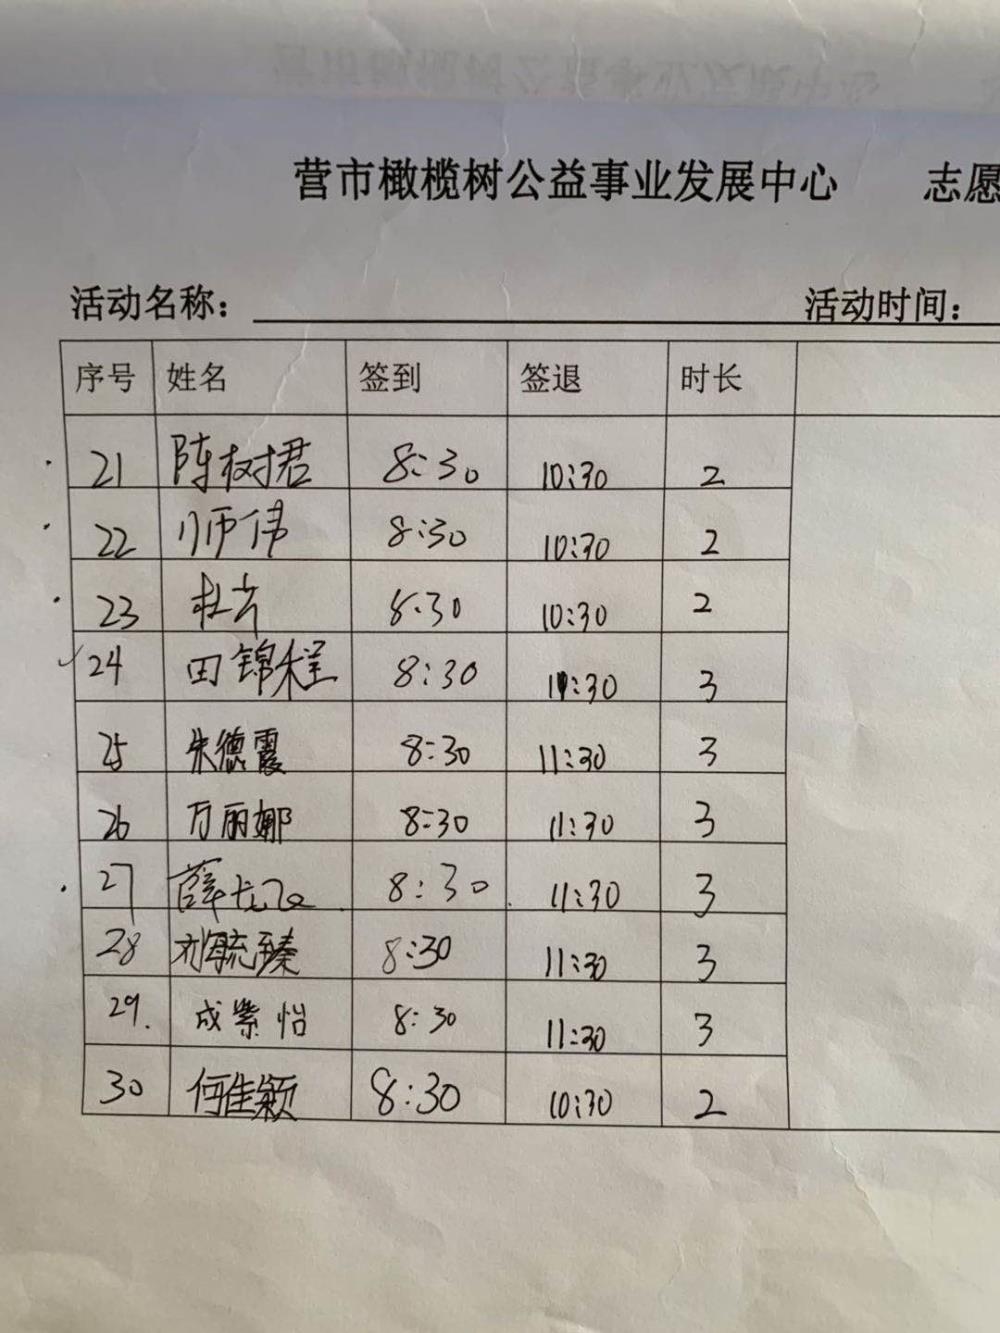 营市橄榄树公益事业发展中心 志愿
活动名称： 活动时间：
序号 姓名 签到 签退 时长
21 陈树君 8:30 10:30 2
22 师伟 8:30 10:30 2
23 杜芳 8:30 10:30 2
24 田锦程 8:30 11:30 3
25 朱德霞 8:30 11:30 3
26 万丽娜 8:30 11:30 3
27 薛龙飞 8:30 11:30 3
28 刘毓臻 8:30 11:30 3
29. 成紫怡 8:30 11:30 3
30 何佳颖 8:30 10:30 2